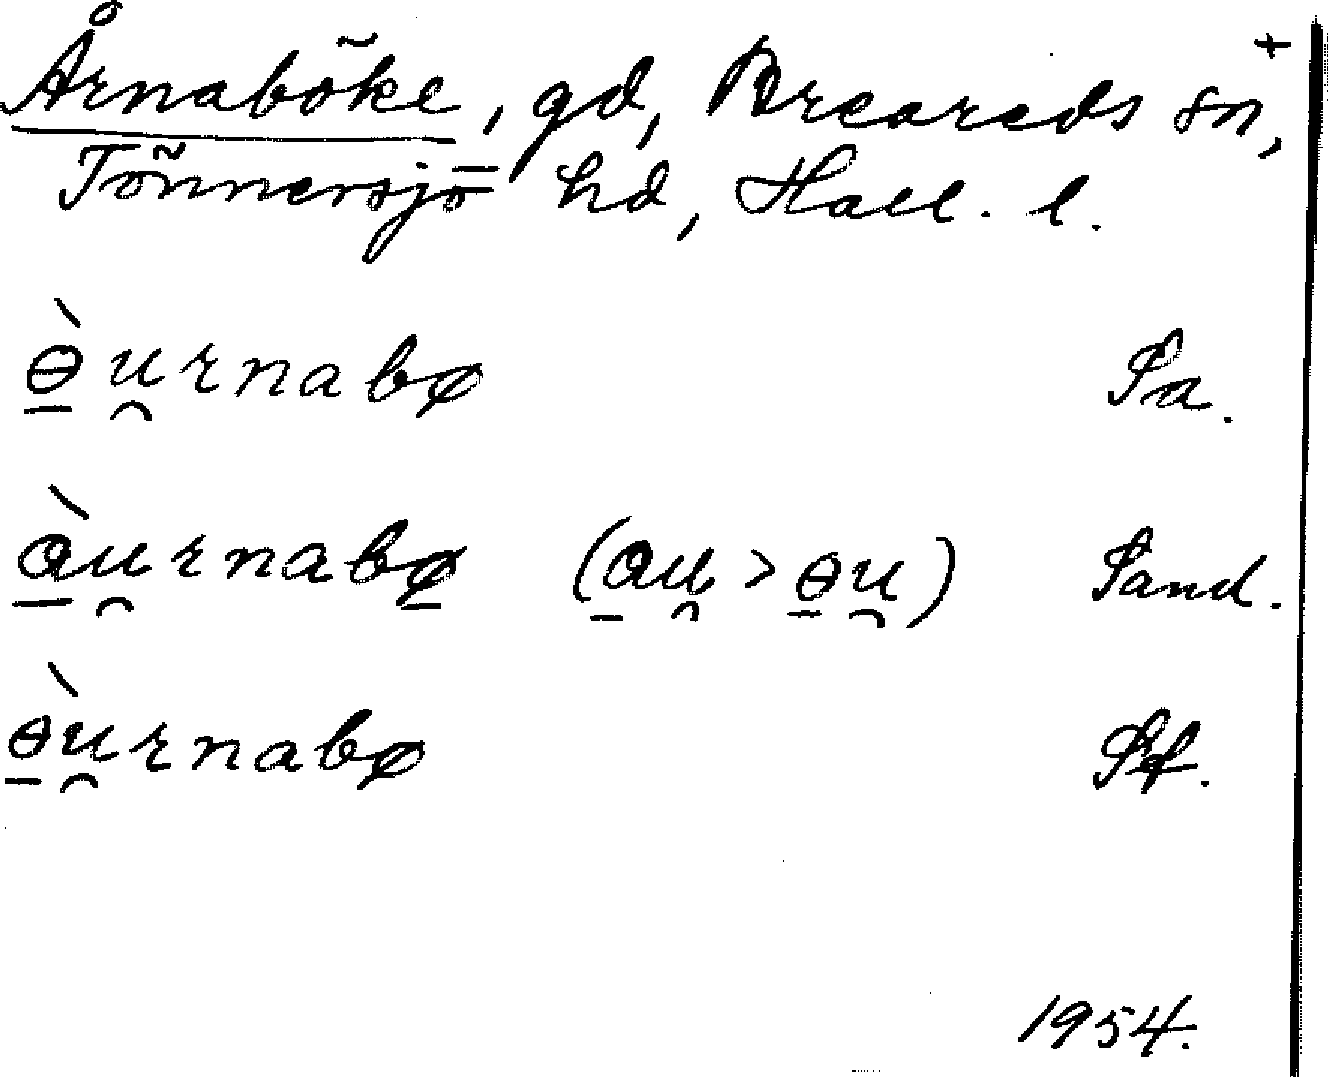 Årnaböke, gd, Breareds sn, +
Tönnersjö hd, Hall. l.
ɵ̠̀u̯rnabø Sa.
à̠u̯rnabø̠ (a̠u̯ > ɵ̠u̯) Sand.
ɵ̠̀u̯rnabø
1954.